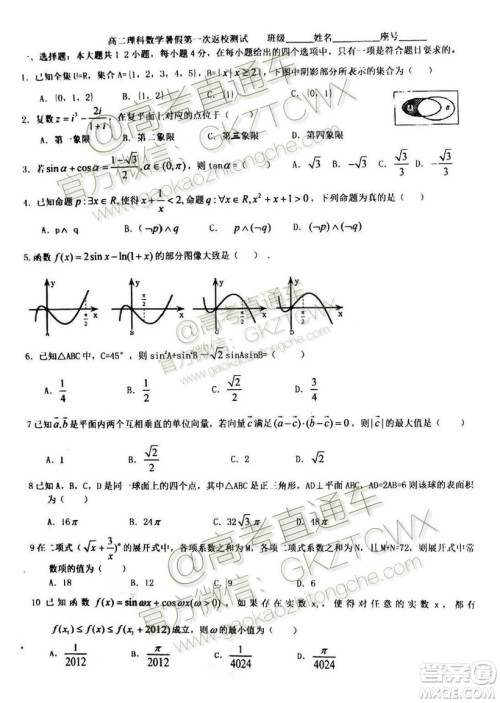 高二理科数学暑假第一次返校测试 班级____姓名____座号____
一、选择题：本大题共12小题，每小题4分，在每小题给出的4个选项中，只有一项是符合题目要求的。
1. 已知全集U=R，集合A={1, 2, 3, 4, 5}，图中阴影部分所表示的集合为（ ）
A. {0, 1, 2} B. {1, 2} C. {1} D. {0, 1}
2. 复数 z = i³ - 2i/(1+i)，在复平面上对应的点位于（ ）
A. 第一象限 B. 第二象限 C. 第三象限 D. 第四象限
3. 若 sinα + cosα = (1-√3)/2, α∈(0, π)，则 tanα=（ ） A. √3 B. -√3 C. D.
4. 已知命题 p: ∃x∈R, 使得 x + 1/x < 2, 命题 q: ∀x∈R, x² + x + 1 > 0，下列命题为真的是（ ）
A. p∧q B. (¬p)∧q C. p∧(¬q) D. (¬p)∧(¬q)
5. 函数 f(x) = 2sin x - ln(1+x) 的部分图像大致是（ ）
y x π/2 A
y x π/2 B
y x π/2
y x π/2 D
6. 已知△ABC中，C=45°，则 sin²A+sin²B-√2 sinAsinB=（ ）
A. 1/4 B. 1/2 C. √2/2 D. 3/4
7 已知 a, b 是平面内两个互相垂直的单位向量，若向量 c 满足 (a-c)·(b-c)=0，则 |c| 的最大值是（ ）
A. 1 B. √2/2 C. 2 D. √2
8 已知 A, B, C, D 是同一球面上的四个点，其中△ABC是正三角形，AD⊥平面ABC，AD=2AB=6则该球的表面积
为（ ） A. 16π B. 24π C. 32√3 π D. 48π
9 在二项式 (√x + 3/x)ⁿ 的展开式中，各项系数之和为M，各项二项式系数之和为N，且M+N=72，则展开式中常
数项的值为（ ） A. 18 B. 12 C. 9 D. 6
10 已知函数 f(x) = sin ωx + cos ωx(ω>0)，如果存在实数 x₁，使得对任意的实数 x，都有
f(x₁) ≤ f(x) ≤ f(x₁+2012) 成立，则 ω 的最小值为（ ）
A. 1/2012 B. π/2012 C. 1/4024 D. π/4024
@高考直通车
官方微信：GKZTCWX
www.gaokaozhitongche.com
@高考直通车
官方微信：GKZTCWX
www.gaokaozhitongche.com